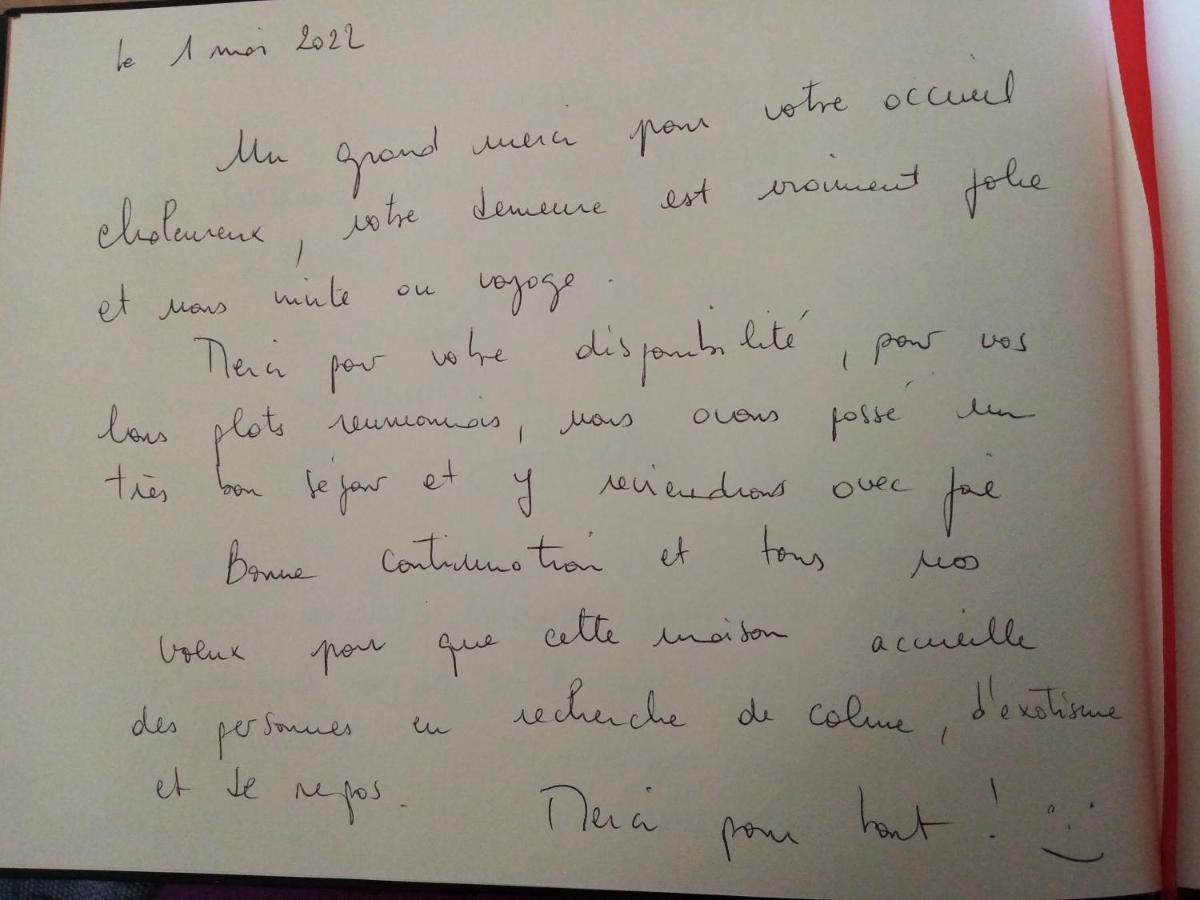 le 1 mai 2022
Un grand merci pour votre accueil
chaleureux, votre demeure est vraiment jolie
et nous invite au voyage.
Merci pour votre disponibilité, pour vos
bons plats reunionnais, nous avons passé un
très bon séjour et y reviendrons avec joie
Bonne continuation et tous nos
voeux pour que cette maison accueille
des personnes en recherche de calme, d'exotisme
et de repos.
Merci pour tout ! :)